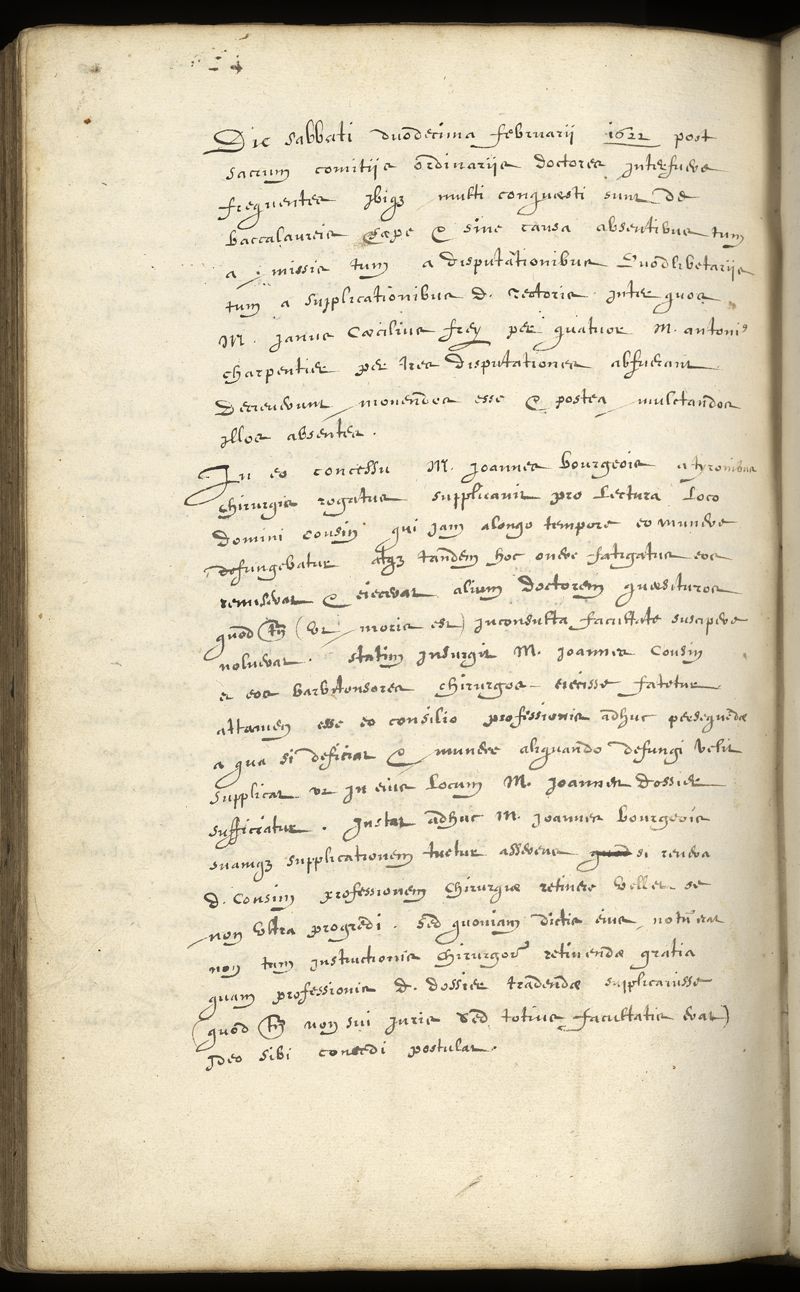 Die sabbati duodecima februarii 1622 post
sacrum comitiis ordinariis doctores interfuere
frequentes ibiq; multi conquæsti sunt de
baccalaureis sæpe & sine causa absentibus tum
a missis tum a disputâtionibus Quodlibetariis
tum a supplicationibus d. rectoris inter quos
M. Janus Cæcilius frey per quatuor M. antoni9
charpentier per tres disputationes abfuerant
Decreverunt monendos esse & postea mulctandos
illos absentes.
In eo concessu M. Joannes bourgeois a tyronibus
chirurgis rogatus supplicavit pro Lectura Loco
domini Cousin qui jam alongo tempore eo munere
defungebatur atq; tandem hoc onere fatigatus eos
remiserat & eiecerat alium doctorem quæsituros
quod tn̄ (ut moris est) inconsulta facultate suscipere
noluerat. statim insurgit M. Joannes Cousin
et eos barbitonsores chirurgos eiecisse fatetur
attamen esse eo consilio professionis adhuc persequendæ
a qua si deficiat & munere aliquando defungi velit
supplicat ut in eius Locum M. Joannes dossier
sufficiatur. Instat adhuc M. Joannes bourgeois
suamq; supplicationem tuetur asserens quod si revera
d. Cousin professionem chirurgiæ retinere vellet se
non ultra progredi. sed quoniam dictis eius notū erat
non tam instructionis chirurgorū retinendæ gratia
quam professionis d. dossier tradendæ supplicavisse
(quod tn̄ non sui juris sed totius facultatis erat)
Ideo sibi concedi postulat.